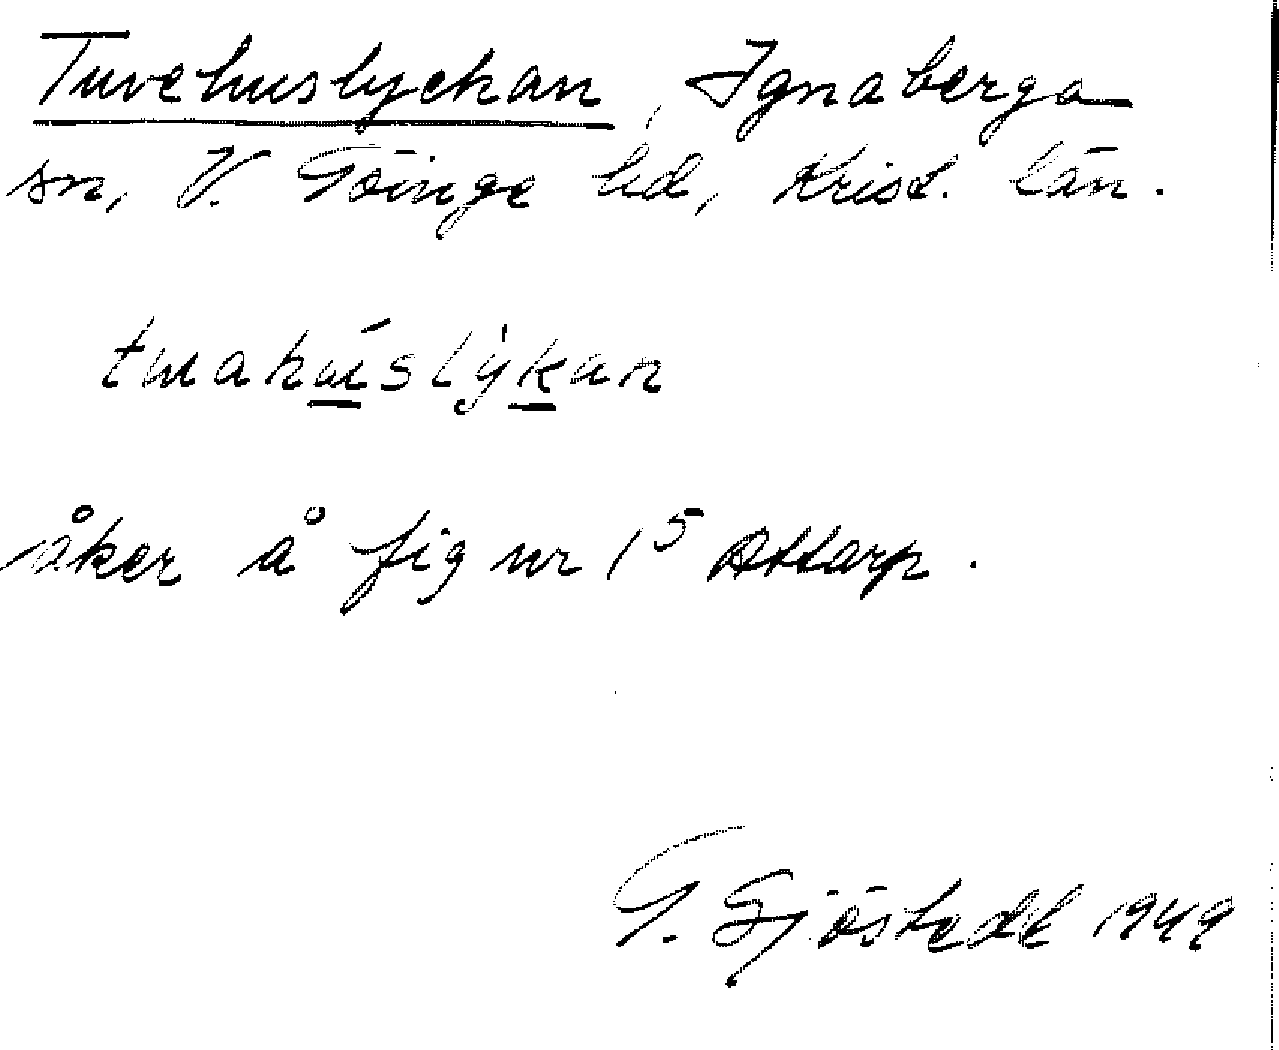 Tuvehuslyckan, Ignaberga
sn, V. Göinge hd, Krist. län.
åker å fig nr 15 Attarp.
G. Sjöstedt 1949